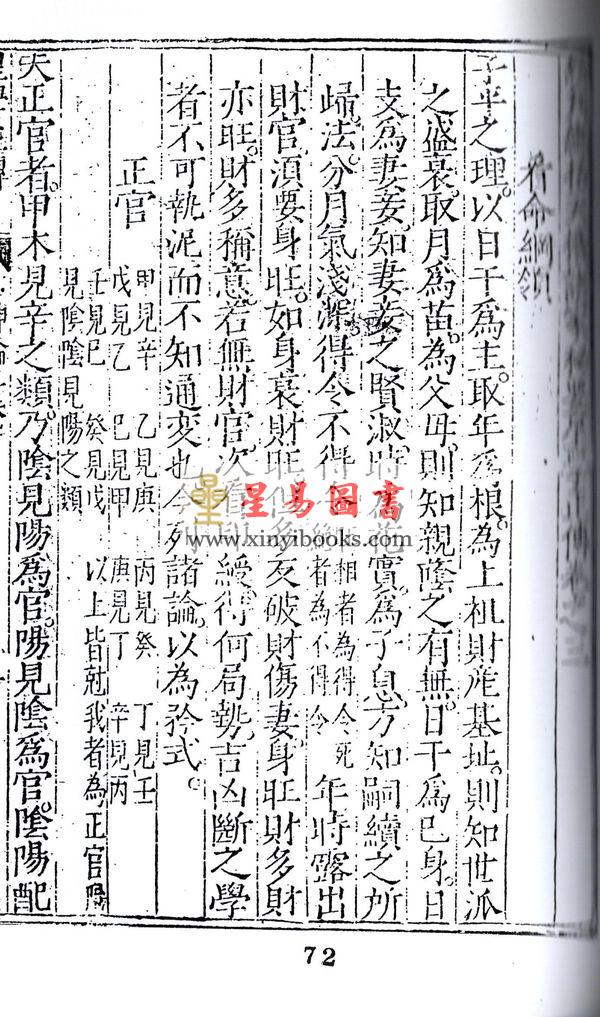 看命綱領
子平之理。以日干為主。取年為根。為上祖財產基址。則知世派
之盛衰。取月為苗。為父母。則知親廕之有無。日干為己身。日
支為妻妾。知妻妾之賢淑。時為花實。為子息。方知嗣續之所
歸。法。分月氣淺深。得令不得令 相者為得令死 者為不得令 年時露出
財官。須要身旺。如身衰財旺 多 破財傷妻。身旺財多財
亦旺。財多稱意。若無財官。次看 綬。得何局勢。吉凶斷之。學
者不可執泥而不知通変也今列諸論。以為矜式。
正官
甲見辛 乙見庚 丙見癸 丁見壬
戊見乙 己見甲 庚見丁 辛見丙
壬見己 癸見戊 以上皆尅我者為正官陽
見陰陰見陽之類
夫正官者。甲木見辛之類。乃陰見陽為官。陽見陰為官。陰陽配
星易圖書
www.xinyibooks.com
72